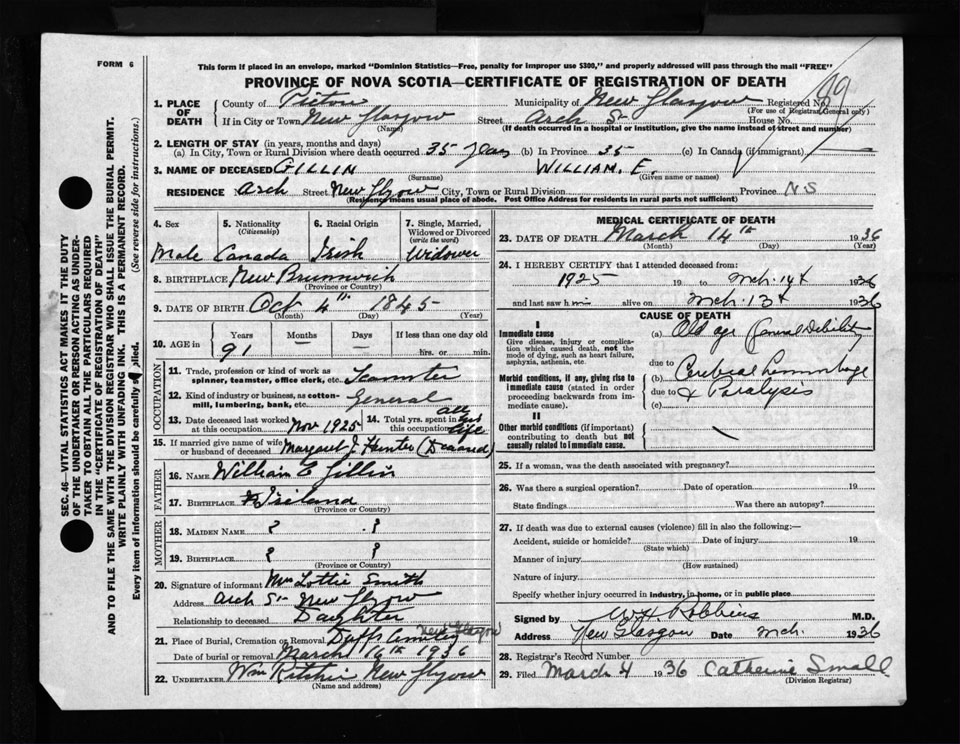 FORM 6
This form if placed in an envelope, marked "Dominion Statistics—Free, penalty for improper use $300," and properly addressed will pass through the mail "FREE"
PROVINCE OF NOVA SCOTIA—CERTIFICATE OF REGISTRATION OF DEATH
SEC. 46—VITAL STATISTICS ACT MAKES IT THE DUTY
OF THE UNDERTAKER OR PERSON ACTING AS UNDER-
TAKER TO OBTAIN ALL THE PARTICULARS REQUIRED
IN THE "CERTIFICATE OF REGISTRATION OF DEATH"
AND TO FILE THE SAME WITH THE DIVISION REGISTRAR WHO SHALL ISSUE THE BURIAL PERMIT.
WRITE PLAINLY WITH UNFADING INK. THIS IS A PERMANENT RECORD.
Every item of information should be carefully supplied. (See reverse side for instructions.)
1. PLACE OF DEATH
County of Pictou Municipality of New Glasgow Registered No. 89
(For use of Registrar General only)
If in City or Town New Glasgow Street Arch St House No.
(Name) (If death occurred in a hospital or institution, give the name instead of street and number)
2. LENGTH OF STAY (in years, months and days)
(a) In City, Town or Rural Division where death occurred 35 years (b) In Province 35 (c) In Canada (if immigrant)
3. NAME OF DECEASED GILLIN WILLIAM. E.
(Surname) (Given name or names)
RESIDENCE No. Arch Street New Glasgow City, Town or Rural Division Province NS
(Residence means usual place of abode. Post Office Address for residents in rural parts not sufficient)
4. Sex 5. Nationality (Citizenship) 6. Racial Origin 7. Single, Married, Widowed or Divorced (write the word)
Male Canada Irish Widower
8. BIRTHPLACE New Brunswick
(Province or Country)
9. DATE OF BIRTH Oct 4th 1845
(Month) (Day) (Year)
10. AGE in Years Months Days If less than one day old
91 — — hrs. or min.
OCCUPATION
11. Trade, profession or kind of work as
spinner, teamster, office clerk, etc. Teamster
12. Kind of industry or business, as cotton-
mill, lumbering, bank, etc. General
13. Date deceased last worked at this occupation Nov 1925 14. Total yrs. spent in this occupation all his life
15. If married give name of wife or husband of deceased Margaret J Hunter (Deceased)
FATHER
16. NAME William E Gillin
17. BIRTHPLACE Ireland
(Province or Country)
MOTHER
18. MAIDEN NAME ? ?
19. BIRTHPLACE ? ?
(Province or Country)
20. Signature of informant Mrs Lottie Smith
Address Arch St New Glasgow
Relationship to deceased Daughter
21. Place of Burial, Cremation or Removal Duffs Cemetery New Glasgow
Date of burial or removal March 16th 1936
22. UNDERTAKER Wm Ritchie New Glasgow
(Name and address)
MEDICAL CERTIFICATE OF DEATH
23. DATE OF DEATH March 14th 1936
(Month) (Day) (Year)
24. I HEREBY CERTIFY that I attended deceased from:
1925 19 to Mch. 14th 1936
and last saw him alive on Mch. 13th 1936
CAUSE OF DEATH
I
Immediate cause
Give disease, injury or complica-
tion which caused death, not the
mode of dying, such as heart failure,
asphyxia, asthenia, etc.
(a) Old age General Debility
due to
Morbid conditions, if any, giving rise to
immediate cause (stated in order
proceeding backwards from im-
mediate cause).
(b) Cerebral hemorrhage
due to & Paralysis
(c)
II
Other morbid conditions (if important)
contributing to death but not
causally related to immediate cause.
25. If a woman, was the death associated with pregnancy?
26. Was there a surgical operation? Date of operation 19
State findings Was there an autopsy?
27. If death was due to external causes (violence) fill in also the following:—
Accident, suicide or homicide? Date of injury 19
(State which)
Manner of injury
(How sustained)
Nature of injury
Specify whether injury occurred in industry, in home, or in public place
Signed by W H Robbins M.D.
Address New Glasgow Date Mch. 1936
28. Registrar's Record Number
29. Filed March 4 1936 Catherine Small
(Division Registrar)